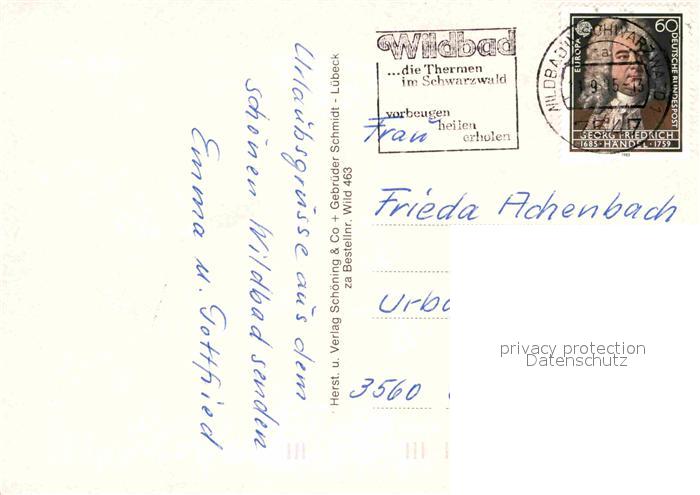 Wildbad
...die Thermen
im Schwarzwald
vorbeugen
heilen
erholen
EUROPA
60
DEUTSCHE BUNDESPOST
GEORG FRIEDRICH
1685 HÄNDEL 1759
Urlaubsgrüsse aus dem
schönen Wildbad senden
Emma u. Gottfried
Herst. u. Verlag Schöning & Co + Gebrüder Schmidt - Lübeck
za Bestellnr. Wild 463
Frau
Frieda Achenbach
Urba
3560
privacy protection
Datenschutz